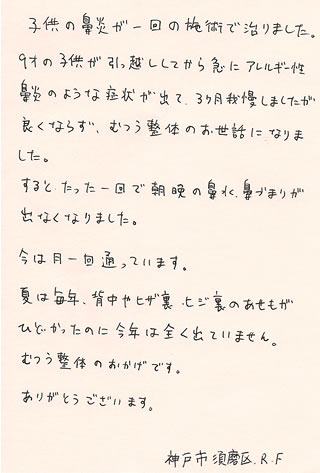 子供の鼻炎が一回の施術で治りました。
9才の子供が引っ越ししてから急にアレルギー性
鼻炎のような症状が出て、3ヶ月我慢しましたが
良くならず、むつう整体のお世話になりま
した。
すると、たった一回で朝晩の鼻水、鼻づまりが
出なくなりました。
今は月一回通っています。
夏は毎年、背中やヒザ裏、ヒジ裏のあせもが
ひどかったのに今年は全く出ていません。
むつう整体のおかげです。
ありがとうございます。
神戸市須磨区.R.F